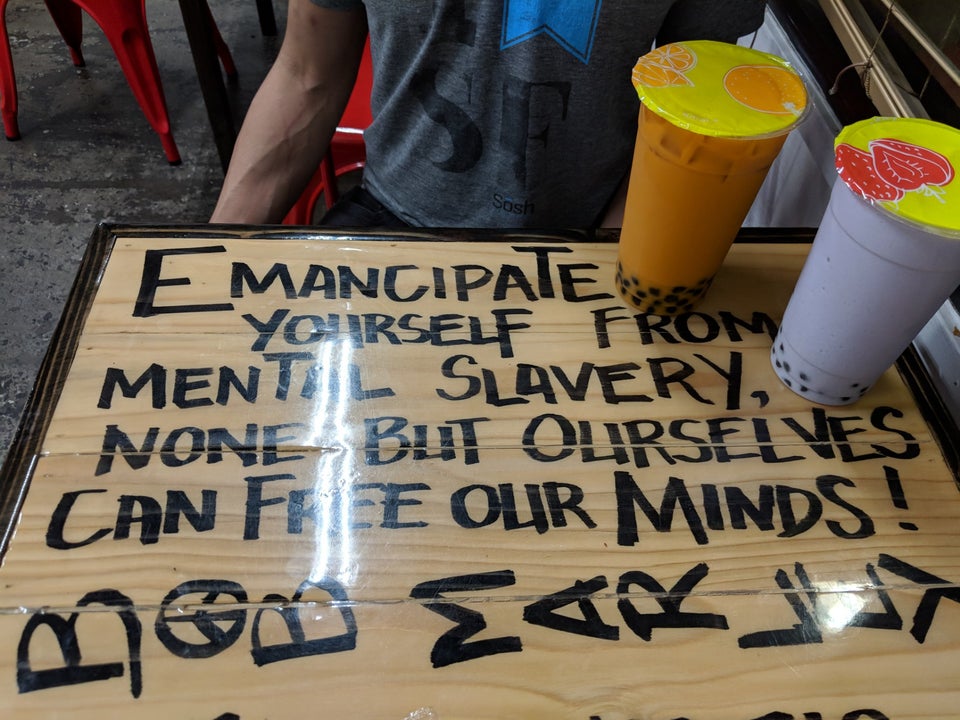 SF
Sosh
EMANCIPATE
YOURSELF FROM
MENTAL SLAVERY,
NONE BUT OURSELVES
CAN FREE OUR MINDS!
BOB MARLEY